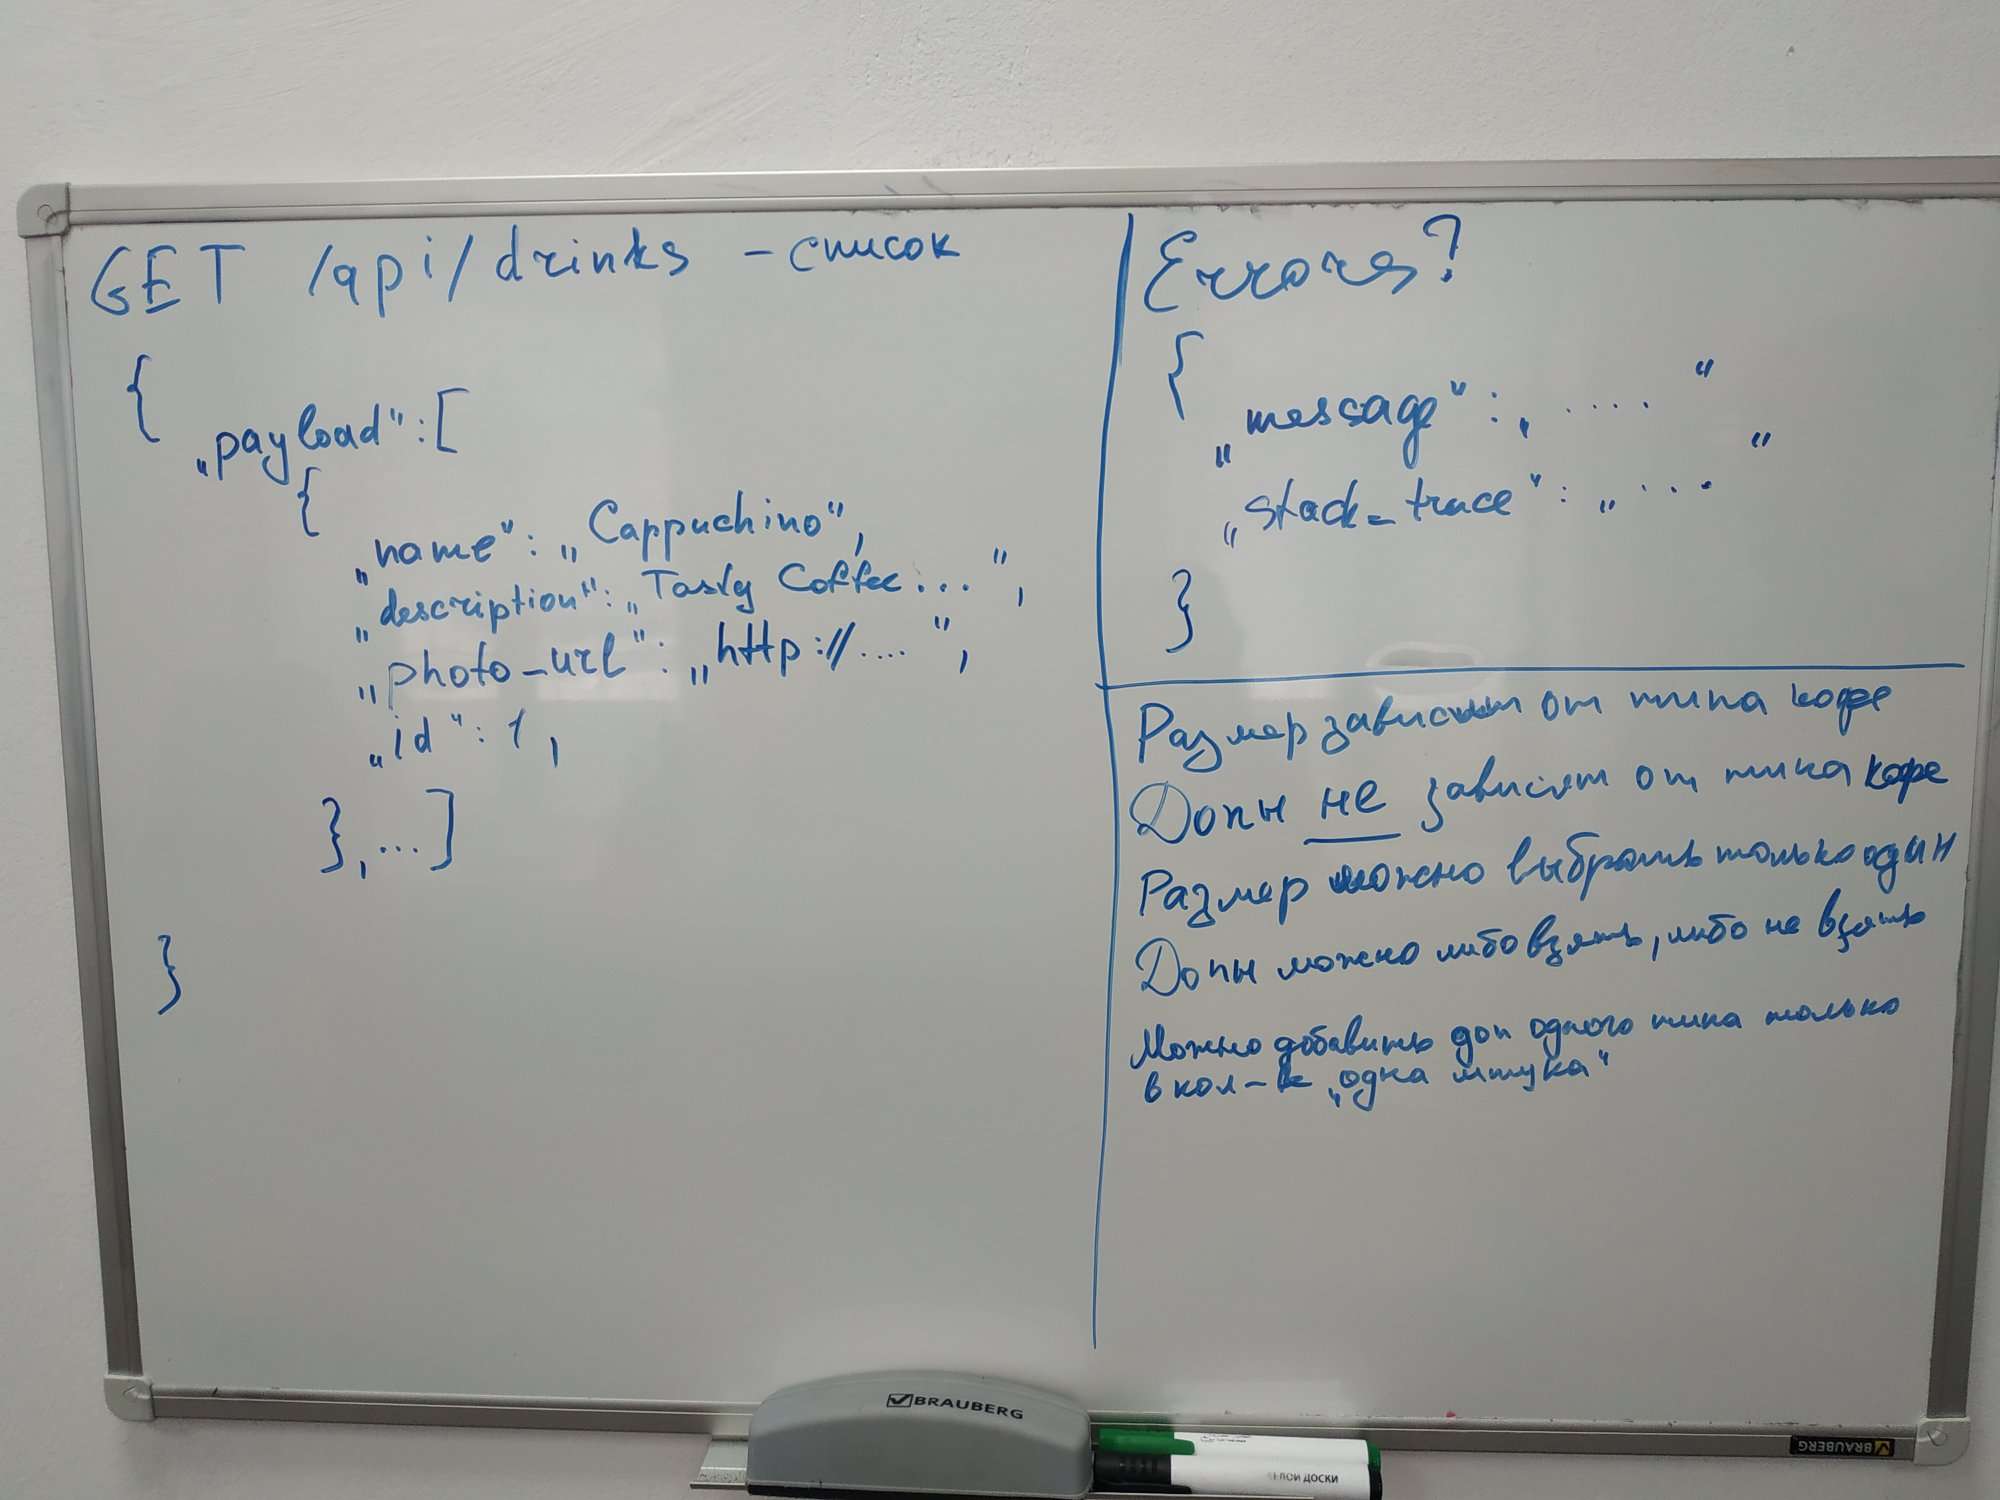 GET /api/drinks - список
{
„payload": [
{
„name": „Cappuchino",
„description": „Tasty Coffee...",
„photo_url": „http://....",
„id": 1,
},...]
}
Errors?
{
„message": „....."
„stack_trace": „...."
}
Размер зависит от типа кофе
Допы не зависят от типа кофе
Размер можно выбрать только один
Допы можно либо взять, либо не взять
Можно добавить доп одного типа только
в кол-ве „одна штука"
BRAUBERG
BRAUBERG
ДОСКИ